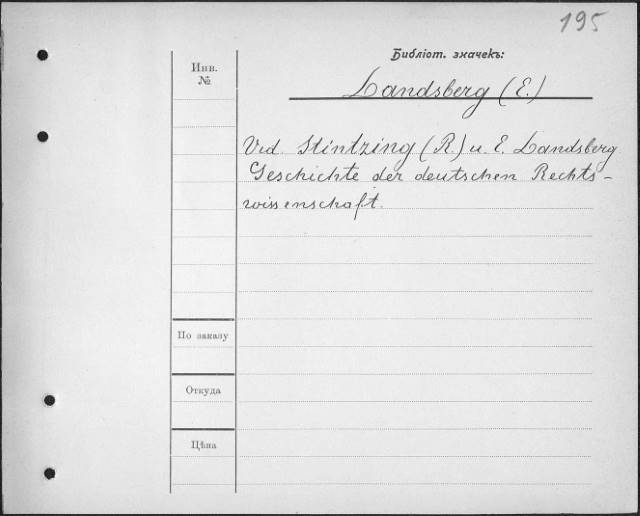 195
Библіот. значекъ:
Инв.
№
Landsberg (E.)
Vid. Stintzing (R.) u. E. Landsberg
Geschichte der deutschen Rechts-
wissenschaft.
По заказу
Откуда
Цѣна